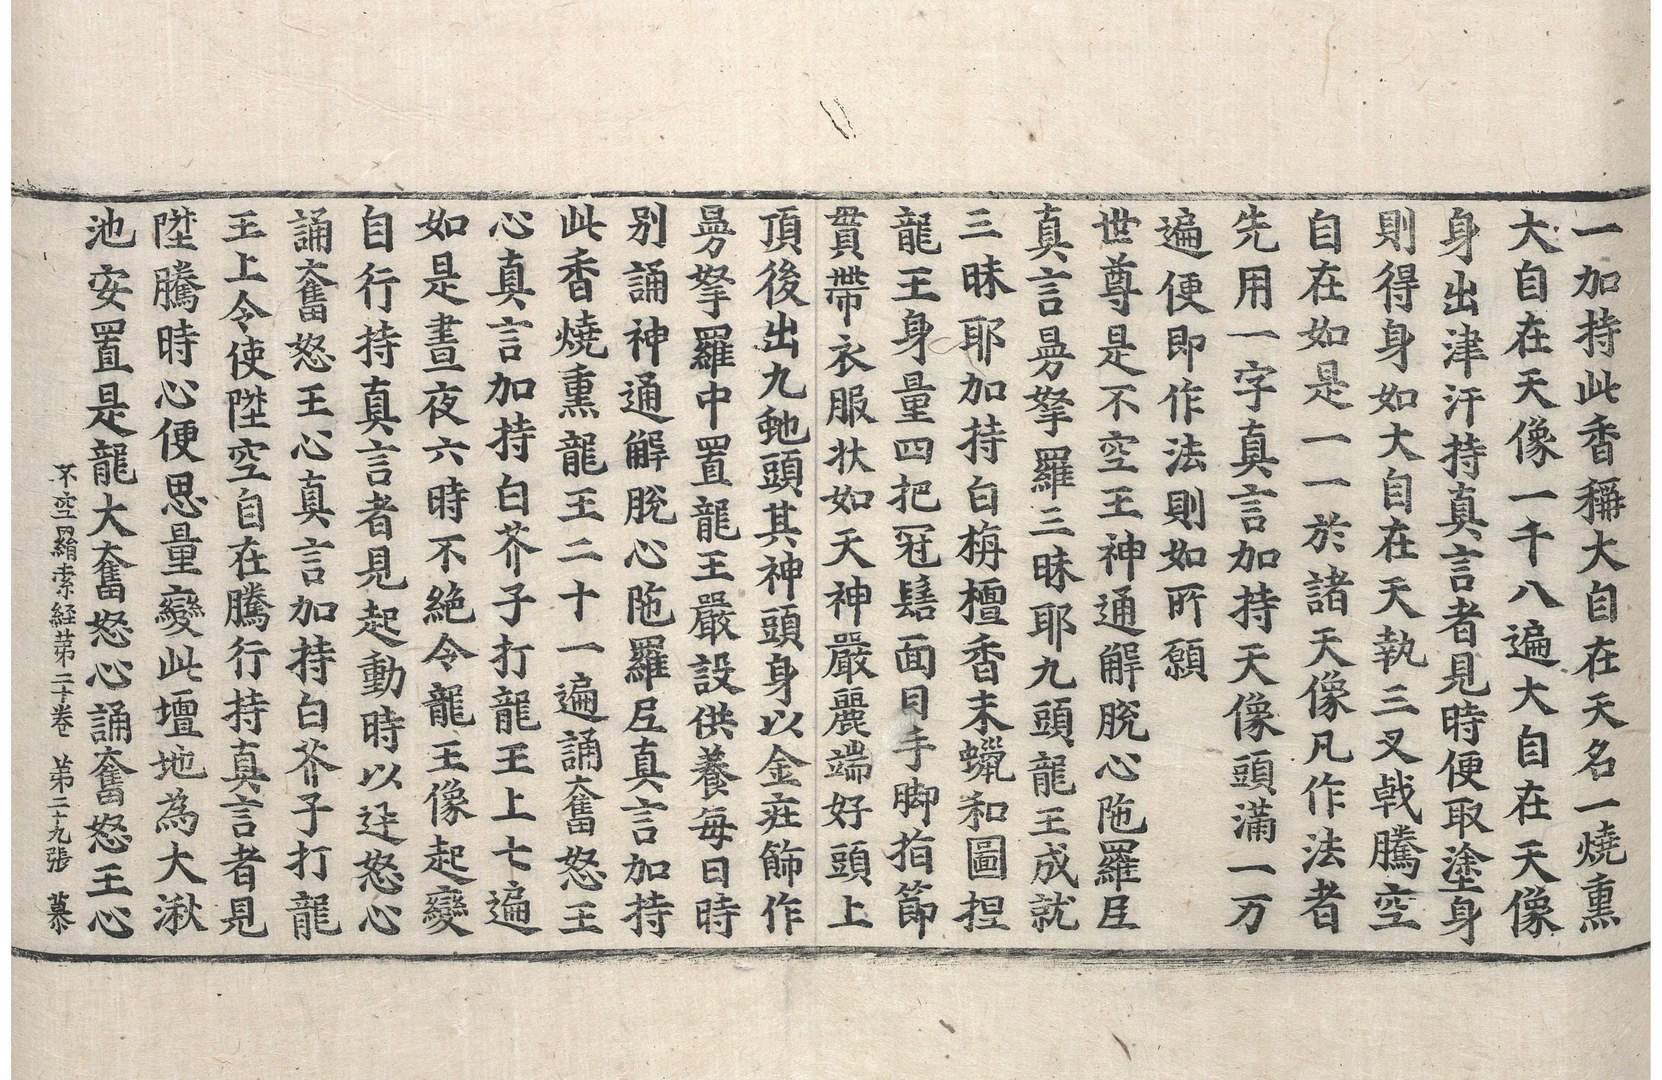 一加持此香稱大自在天名一燒熏
大自在天像一千八遍大自在天像
身出津汗持真言者見時便取塗身
則得身如大自在天執三叉戟騰空
自在如是一一於諸天像凡作法者
先用一字真言加持天像頭滿一万
遍便即作法則如所願
世尊是不空王神通解脫心陁羅尼
真言曼拏羅三昧耶九頭龍王成就
三昧耶加持白栴檀香末蠟和圖捏
龍王身量四把冠鬘面目手脚指節
貫帶衣服狀如天神嚴麗端好頭上
頂後出九虵頭其神頭身以金莊飾作
曼拏羅中置龍王嚴設供養每日時
別誦神通解脫心陁羅尼真言加持
此香燒熏龍王二十一遍誦奮怒王
心真言加持白芥子打龍王上七遍
如是晝夜六時不絕令龍王像起變
自行持真言者見起動時以迋怒心
誦奮怒王心真言加持白芥子打龍
王上令使陞空自在騰行持真言者見
陞騰時心便思量變此壇地為大湫
池安置是龍大奮怒心誦奮怒王心
不空羂索經第二十卷 第二十九張 慕